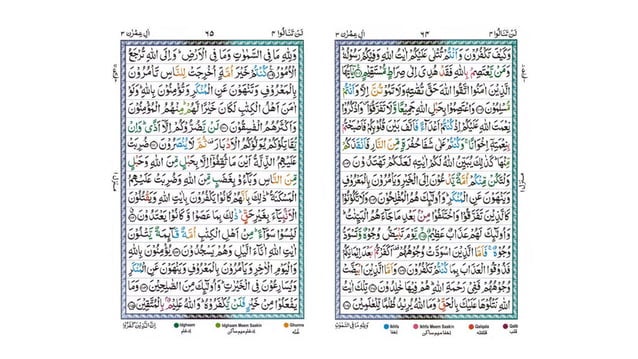 لَنْ تَنَالُوا ٤
اٰلِ عِمْرٰن ٣
وَكَيْفَ تَكْفُرُوْنَ وَاَنْتُمْ تُتْلٰى عَلَيْكُمْ اٰيٰتُ اللّٰهِ وَفِيْكُمْ رَسُوْلُهٗ
وَمَنْ يَّعْتَصِمْ بِاللّٰهِ فَقَدْ هُدِيَ اِلٰى صِرَاطٍ مُّسْتَقِيْمٍ يٰۤاَيُّهَا
الَّذِيْنَ اٰمَنُوا اتَّقُوا اللّٰهَ حَقَّ تُقٰتِهٖ وَلَا تَمُوْتُنَّ اِلَّا وَاَنْتُمْ
مُّسْلِمُوْنَ وَاعْتَصِمُوْا بِحَبْلِ اللّٰهِ جَمِيْعًا وَّلَا تَفَرَّقُوْا وَاذْكُرُوْا
نِعْمَتَ اللّٰهِ عَلَيْكُمْ اِذْ كُنْتُمْ اَعْدَآءً فَاَلَّفَ بَيْنَ قُلُوْبِكُمْ فَاَصْبَحْتُمْ
بِنِعْمَتِهٖۤ اِخْوَانًا وَكُنْتُمْ عَلٰى شَفَا حُفْرَةٍ مِّنَ النَّارِ فَاَنْقَذَكُمْ
مِّنْهَا كَذٰلِكَ يُبَيِّنُ اللّٰهُ لَكُمْ اٰيٰتِهٖ لَعَلَّكُمْ تَهْتَدُوْنَ
وَلْتَكُنْ مِّنْكُمْ اُمَّةٌ يَّدْعُوْنَ اِلَى الْخَيْرِ وَيَاْمُرُوْنَ بِالْمَعْرُوْفِ
وَيَنْهَوْنَ عَنِ الْمُنْكَرِ وَاُولٰٓئِكَ هُمُ الْمُفْلِحُوْنَ وَلَا تَكُوْنُوْا
كَالَّذِيْنَ تَفَرَّقُوْا وَاخْتَلَفُوْا مِنْۢ بَعْدِ مَا جَآءَهُمُ الْبَيِّنٰتُ
وَاُولٰٓئِكَ لَهُمْ عَذَابٌ عَظِيْمٌ يَّوْمَ تَبْيَضُّ وُجُوْهٌ وَّتَسْوَدُّ
وُجُوْهٌ فَاَمَّا الَّذِيْنَ اسْوَدَّتْ وُجُوْهُهُمْ اَكَفَرْتُمْ بَعْدَ اِيْمَانِكُمْ
فَذُوْقُوا الْعَذَابَ بِمَا كُنْتُمْ تَكْفُرُوْنَ وَاَمَّا الَّذِيْنَ ابْيَضَّتْ
وُجُوْهُهُمْ فَفِيْ رَحْمَةِ اللّٰهِ هُمْ فِيْهَا خٰلِدُوْنَ تِلْكَ اٰيٰتُ
اللّٰهِ نَتْلُوْهَا عَلَيْكَ بِالْحَقِّ وَمَا اللّٰهُ يُرِيْدُ ظُلْمًا لِّلْعٰلَمِيْنَ
Ikhfa Ikhfa Meem Saakin Qalqala Qalb
لَنْ تَنَالُوا ٤
٦٥
اٰلِ عِمْرٰن ٣
وَلِلّٰهِ مَا فِي السَّمٰوٰتِ وَمَا فِي الْاَرْضِ وَاِلَى اللّٰهِ تُرْجَعُ
الْاُمُوْرُ كُنْتُمْ خَيْرَ اُمَّةٍ اُخْرِجَتْ لِلنَّاسِ تَاْمُرُوْنَ
بِالْمَعْرُوْفِ وَتَنْهَوْنَ عَنِ الْمُنْكَرِ وَتُؤْمِنُوْنَ بِاللّٰهِ وَلَوْ
اٰمَنَ اَهْلُ الْكِتٰبِ لَكَانَ خَيْرًا لَّهُمْ مِنْهُمُ الْمُؤْمِنُوْنَ
وَاَكْثَرُهُمُ الْفٰسِقُوْنَ لَنْ يَّضُرُّوْكُمْ اِلَّاۤ اَذًى وَاِنْ
يُّقَاتِلُوْكُمْ يُوَلُّوْكُمُ الْاَدْبَارَ ثُمَّ لَا يُنْصَرُوْنَ ضُرِبَتْ
عَلَيْهِمُ الذِّلَّةُ اَيْنَ مَا ثُقِفُوْۤا اِلَّا بِحَبْلٍ مِّنَ اللّٰهِ وَحَبْلٍ
مِّنَ النَّاسِ وَبَآءُوْ بِغَضَبٍ مِّنَ اللّٰهِ وَضُرِبَتْ عَلَيْهِمُ
الْمَسْكَنَةُ ذٰلِكَ بِاَنَّهُمْ كَانُوْا يَكْفُرُوْنَ بِاٰيٰتِ اللّٰهِ وَيَقْتُلُوْنَ
الْاَنْۢبِيَآءَ بِغَيْرِ حَقٍّ ذٰلِكَ بِمَا عَصَوْا وَّكَانُوْا يَعْتَدُوْنَ
لَيْسُوْا سَوَآءً مِنْ اَهْلِ الْكِتٰبِ اُمَّةٌ قَآئِمَةٌ يَّتْلُوْنَ
اٰيٰتِ اللّٰهِ اٰنَآءَ الَّيْلِ وَهُمْ يَسْجُدُوْنَ يُؤْمِنُوْنَ بِاللّٰهِ
وَالْيَوْمِ الْاٰخِرِ وَيَاْمُرُوْنَ بِالْمَعْرُوْفِ وَيَنْهَوْنَ عَنِ الْمُنْكَرِ
وَيُسَارِعُوْنَ فِي الْخَيْرٰتِ وَاُولٰٓئِكَ مِنَ الصّٰلِحِيْنَ وَمَا
يَفْعَلُوْا مِنْ خَيْرٍ فَلَنْ يُّكْفَرُوْهُ وَاللّٰهُ عَلِيْمٌۢ بِالْمُتَّقِيْنَ
اِنَّ الَّذِيْنَ كَفَرُوْا
Idgham Idghaam Meem Saakin Ghunna